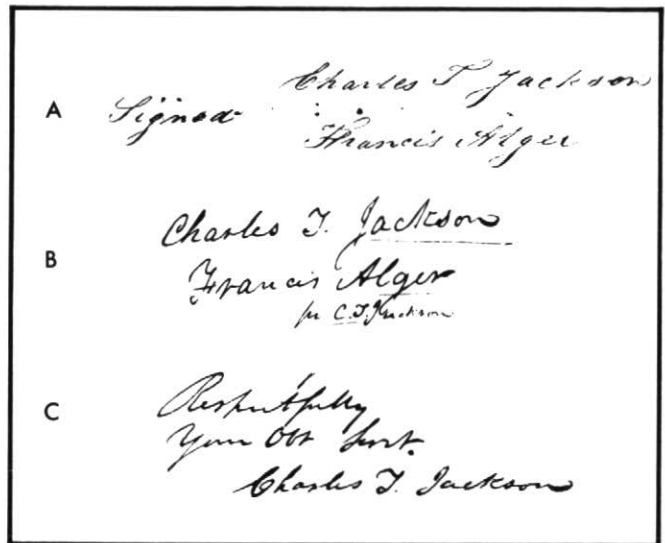 A
Charles T Jackson
Signed
Francis Alger
B
Charles T. Jackson
Francis Alger
for C.T. Jackson
C
Respectfully
Your Obt Servt.
Charles T. Jackson